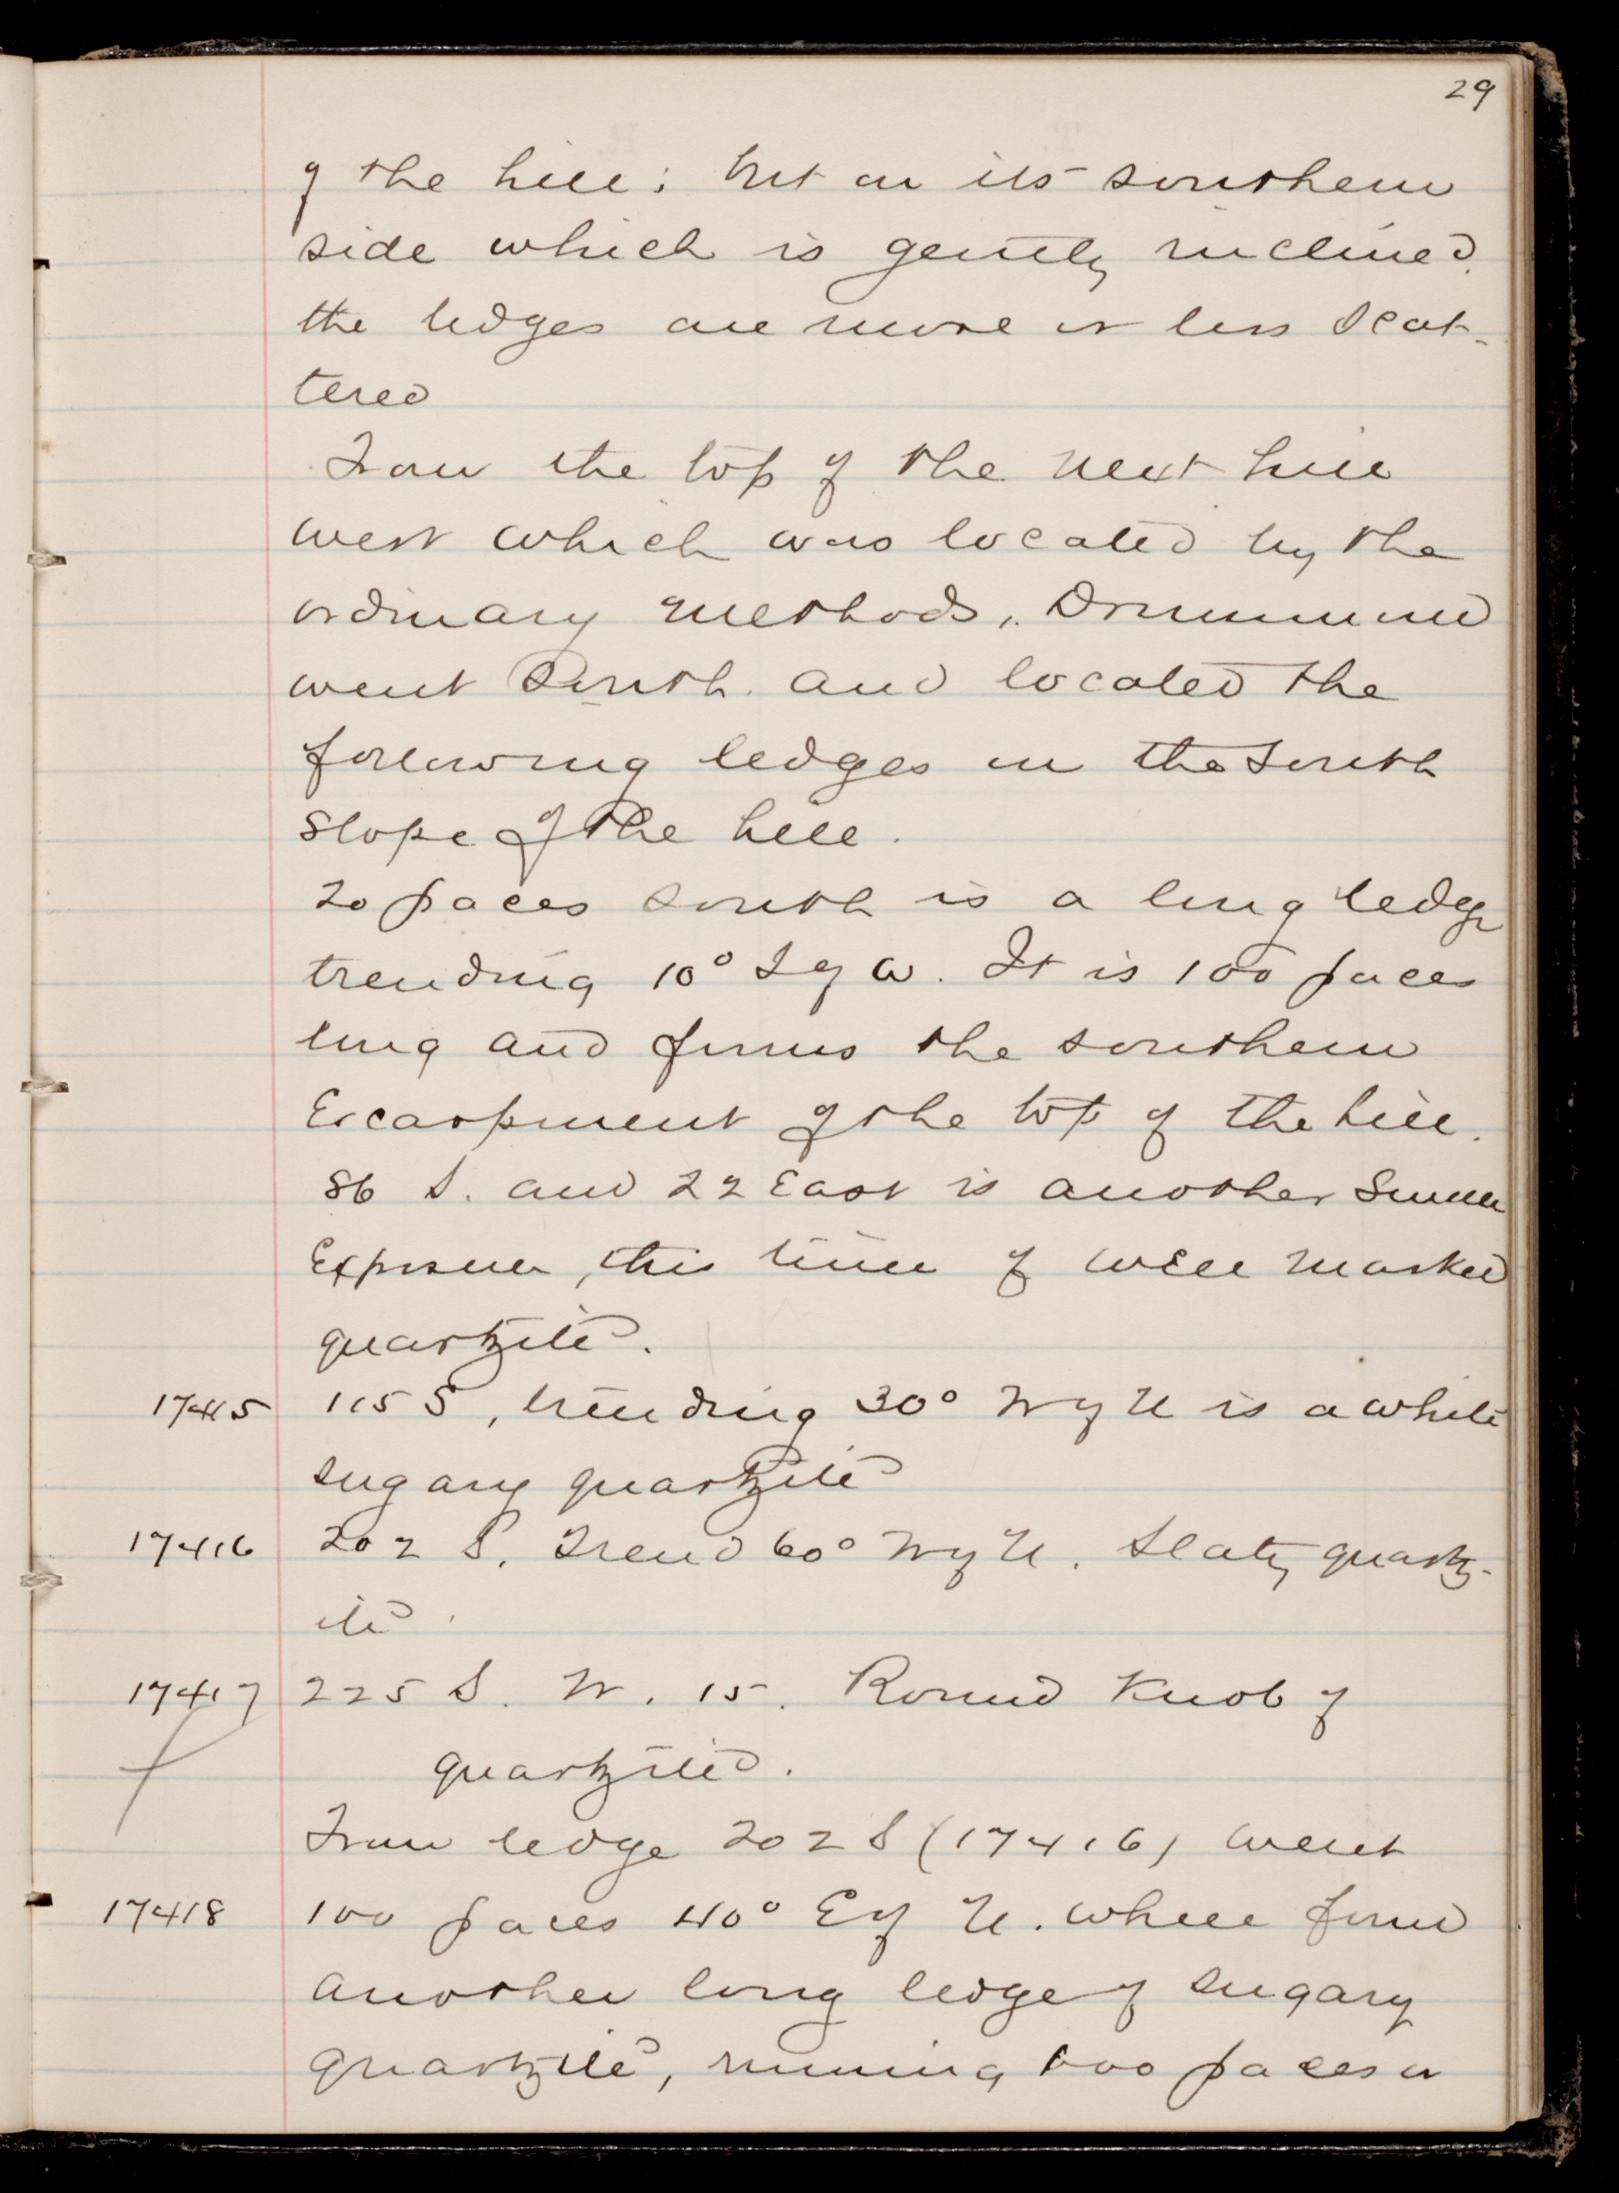 29
of the hill; but on its southern
side which is gently inclined,
the ledges are more or less scat-
tered
From the top of the next hill
west which was located by the
ordinary methods, Drummond
went South and located the
following ledges on the South
slope of the hill.
20 paces south is a long ledge
trending 10° S of W. It is 100 paces
long and forms the southern
Escarpment of the top of the hill.
86 S. and 22 East is another small
Exposure, this time of well marked
quartzite.
17415 115 S, trending 30° W of N is a white
sugary quartzite
17416 202 S. Trend 60° W of N. Slaty quartz-
ite.
17417 225 S. W. 15. Round Knob of
quartzite.
From ledge 202 S (17416) went
17418 100 paces 40° E of N. where found
another long ledge of sugary
quartzite, running 100 paces or